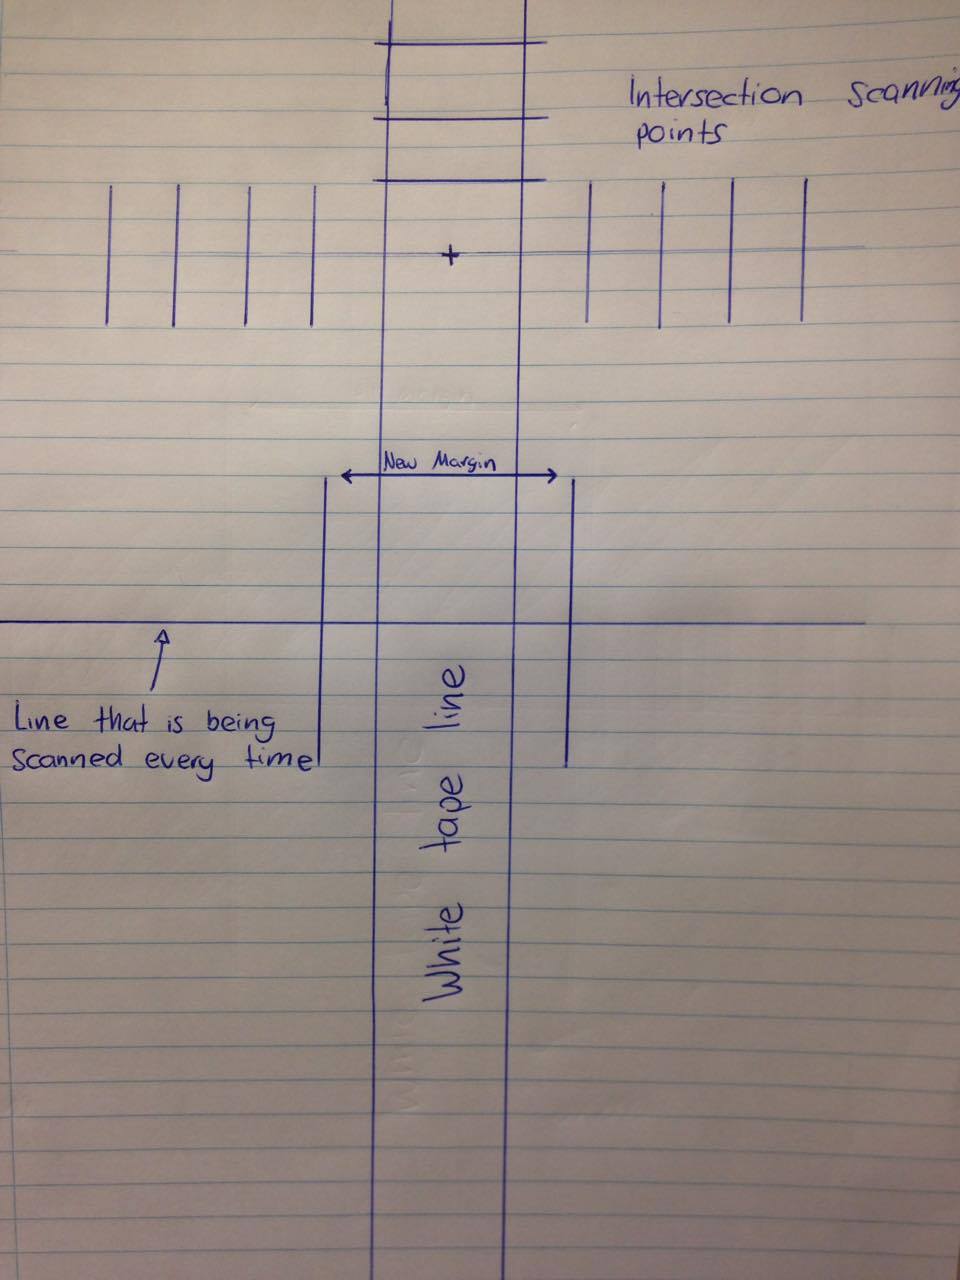 Intersection scanning
points
New Margin
Line that is being
scanned every time
White tape line